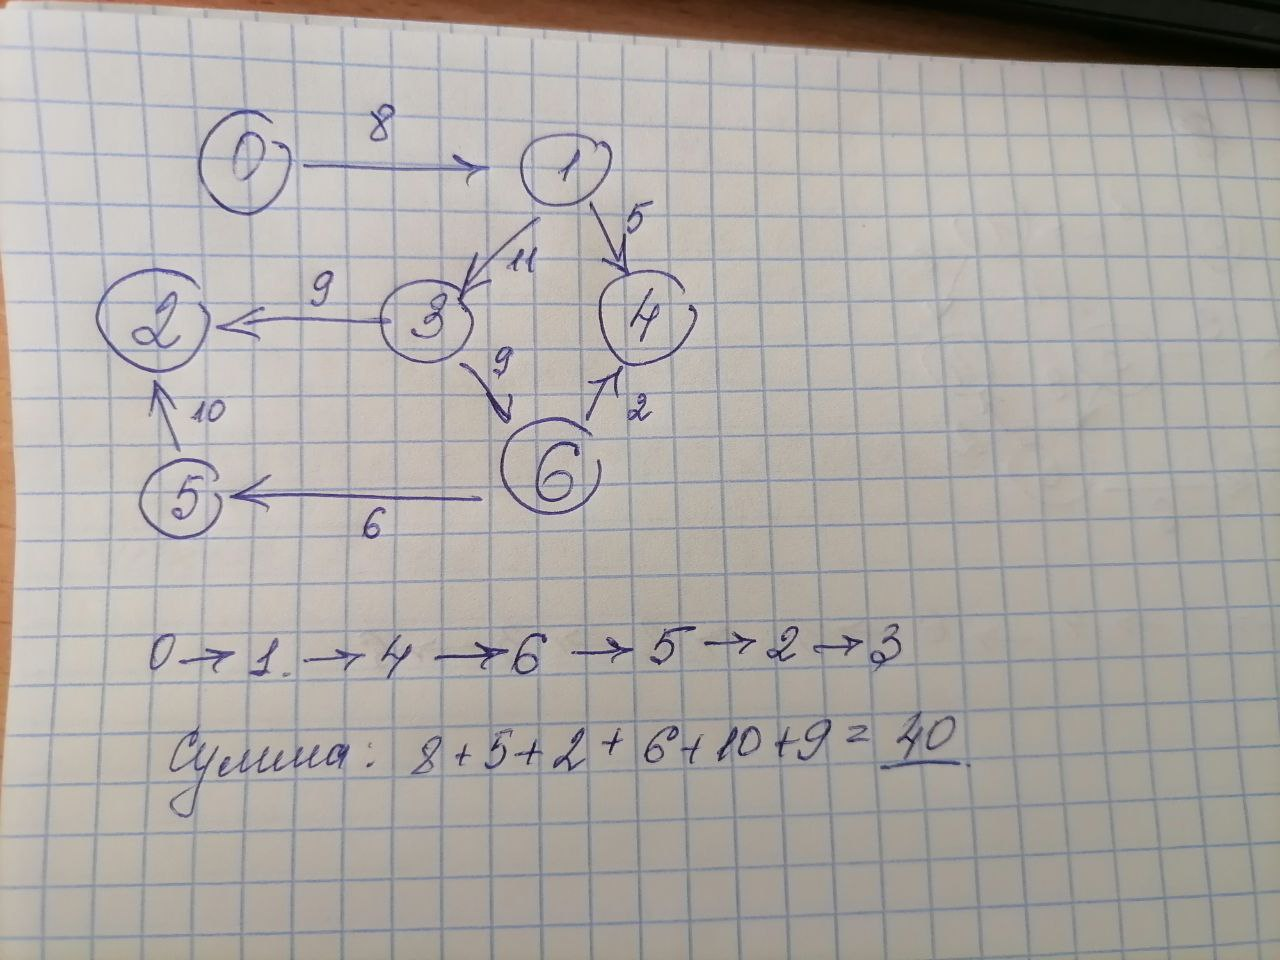 8
0
1
5
11
9
2
3
4
9
2
10
5
6
6
0 → 1. → 4 → 6 → 5 → 2 → 3
Сумма: 8 + 5 + 2 + 6 + 10 + 9 = 40